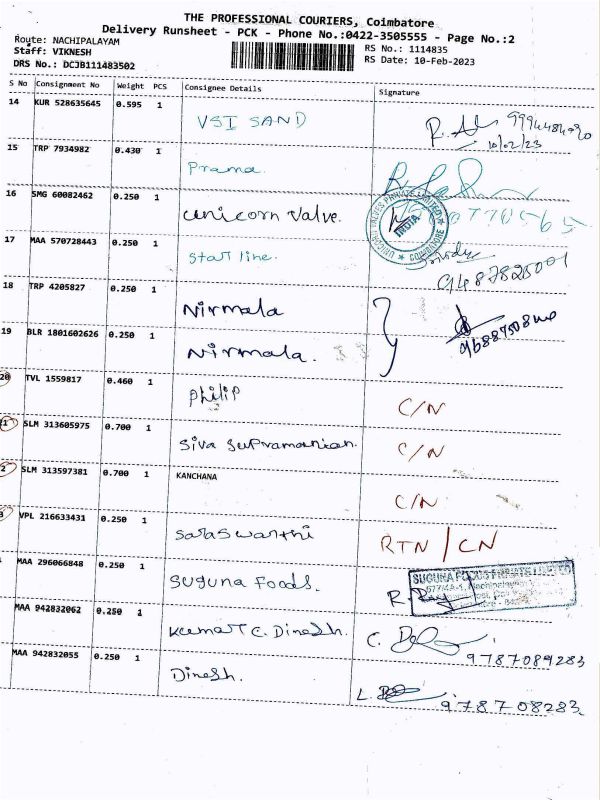 THE PROFESSIONAL COURIERS, Coimbatore
Delivery Runsheet - PCK - Phone No.:0422-3505555 - Page No.:2
Route: NACHIPALAYAM
RS No.: 1114835
Staff: VIKNESH
RS Date: 10-Feb-2023
DRS No.: DCJB111483502
S No Consignment No Weight PCS Consignee Details Signature
14 KUR 528635645 0.595 1 VSI SAND
10/02/23
15 TRP 7934982 0.430 1 Prama.
16 SMG 60082462 0.250 1 unicorn valve.
UNICORN VALVES PRIVATE LIMITED INDIA COIMBATORE
17 MAA 570728443 0.250 1 Star line.
9487825001
18 TRP 4205827 0.250 1 Nirmala
19 BLR 1801602626 0.250 1 Nirmala.
20 TVL 1559817 0.460 1 Philip C/N
SLM 313605975 0.700 1 Siva Supramanian. C/N
SLM 313597381 0.700 1 KANCHANA C/N
VPL 216633431 0.250 1 Saraswarthi RTN / CN
MAA 296066848 0.250 1 Suguna Foods.
SUGUNA FOODS PRIVATE LIMITED
MAA 942832062 0.250 1 Kumar C. Dinesh.
9787089283
MAA 942832055 0.250 1 Dinesh.
978708283